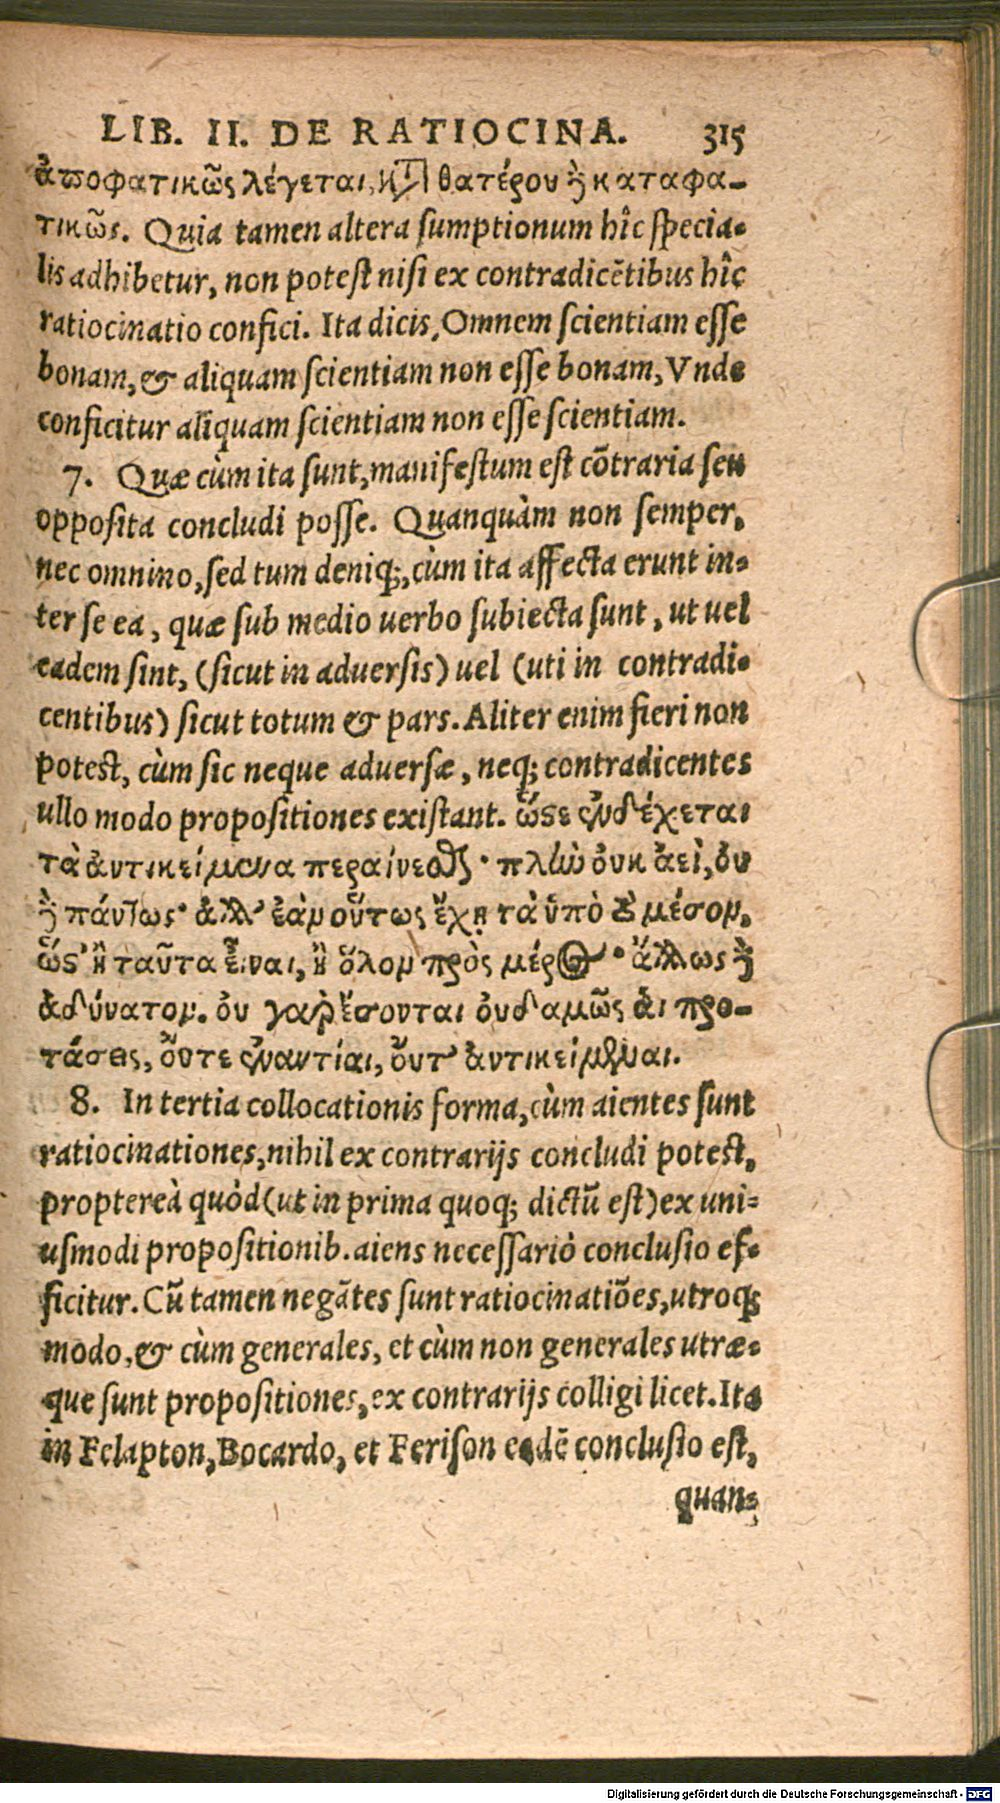 LIB. II. DE RATIOCINA. 315
ἀποφατικῶς λέγεται, κτ̀ θατέρου ἢ καταφα-
τικῶς. Quia tamen altera sumptionum hîc specia-
lis adhibetur, non potest nisi ex contradicētibus hîc
ratiocinatio confici. Ita dicis, Omnem scientiam esse
bonam, & aliquam scientiam non esse bonam, Vnde
conficitur aliquam scientiam non esse scientiam.
7. Quæ cùm ita sunt, manifestum est cōtraria seu
opposita concludi posse. Quanquàm non semper,
nec omnino, sed tum deniq;, cùm ita affecta erunt in-
ter se ea, quæ sub medio uerbo subiecta sunt, ut uel
eadem sint, (sicut in aduersis) uel (uti in contradi-
centibus) sicut totum & pars. Aliter enim fieri non
potest, cùm sic neque aduersæ, neq; contradicentes
ullo modo propositiones existant. ὥςε ἐνδέχεται
τὰ ἀντικείμενα περαίνεσθαι· πλὴν ὀυκ ἀεὶ, ὀυ
δὲ πάντως· ἀλλ' ἐὰν οὕτως ἔχῃ τὰ ὑπὸ τὸ μέσον,
ὥς' ἢ ταῦτα εἶναι, ἢ ὅλον πρὸς μέρος· ἄλλως δὲ
ἀδύνατον. ὀυ γαρ ἔσονται ὀυδαμῶς ἁι προ-
τάσεις, ὄυτε ἐναντίαι, ὄυτ' ἀντικείμεναι.
8. In tertia collocationis forma, cùm aientes sunt
ratiocinationes, nihil ex contrarijs concludi potest,
proptereà quòd (ut in prima quoq; dictū est) ex uni-
usmodi propositionib. aiens necessariò conclusio ef-
ficitur. Cū tamen negātes sunt ratiocinatiōes, utroq;
modo, & cùm generales, et cùm non generales utræ-
que sunt propositiones, ex contrarijs colligi licet. Ita
in Felapton, Bocardo, et Ferison eadē conclusio est,
quan-
Digitalisierung gefördert durch die Deutsche Forschungsgemeinschaft - DFG